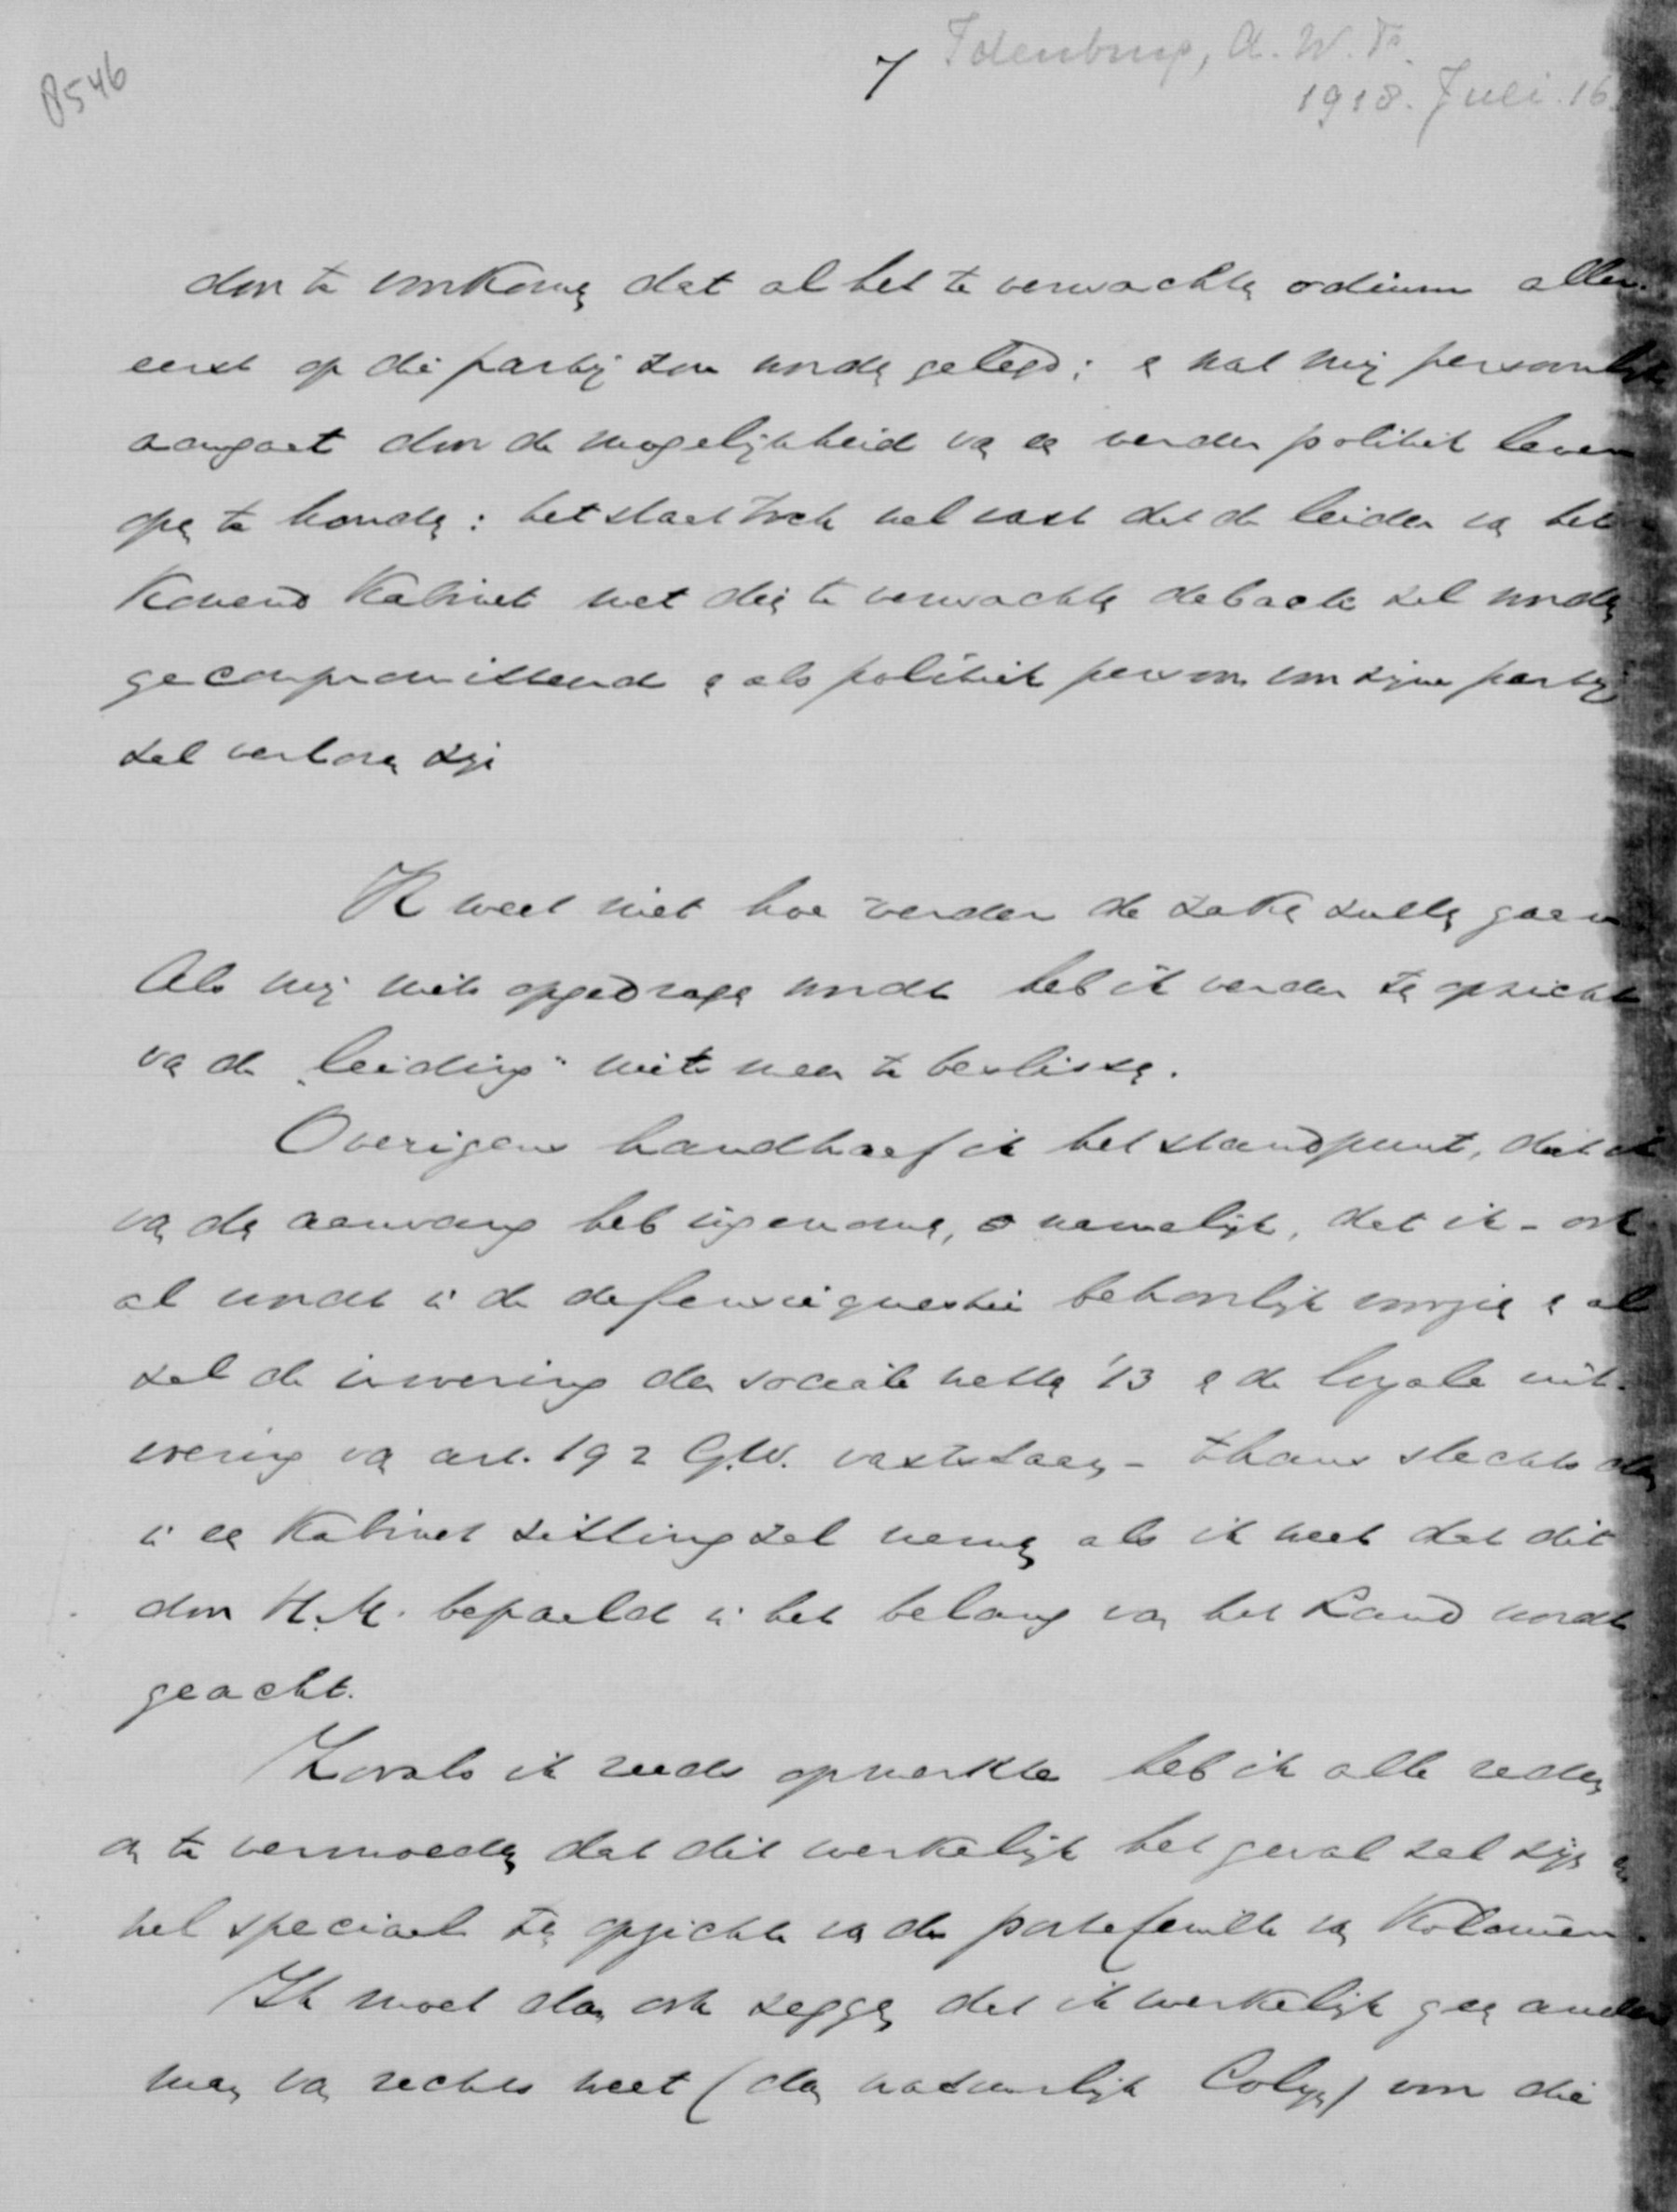 8546
7 Idenburg, A. W. F.
1918. Juli. 16
door te voorkomen dat al het te verwachten odium aller-
eerst op die partij zou worden gelegd; en wat mij persoonlijk
aangaat door de mogelijkheid van een verder politiek leven
open te houden: het staat toch wel vast dat de leider van het
Komend Kabinet met die te verwachten debacle zal worden
gecompromitteerd en als politiek persoon voor zijne partij
zal verloren zijn
Ik weet niet hoe verder de zaken zullen gaan
Als mij niets opgedragen wordt heb ik verder ten opzichte
van de "leiding" niets meer te beslissen.
Overigens handhaaf ik het standpunt, dat ik
van den aanvang heb ingenomen, namelijk, dat ik - ook
al wordt in de defensiequestie behoorlijk voorzien en al
zal de invoering der sociale wetten '13 en de loyale uit-
voering van art. 192 G.W. vaststaan - thans slechts dan
in een Kabinet zitting zal nemen als ik weet dat dit
door H.M. bepaald in het belang van het Land wordt
geacht.
Zooals ik reeds opmerkte heb ik alle reden
om te vermoeden dat dit werkelijk het geval zal zijn en
wel speciaal ten opzichte van de portefeuille van Koloniën.
Ik moet dan ook zeggen dat ik werkelijk geen ander
man van rechts weet (dan natuurlijk Colijn) voor die